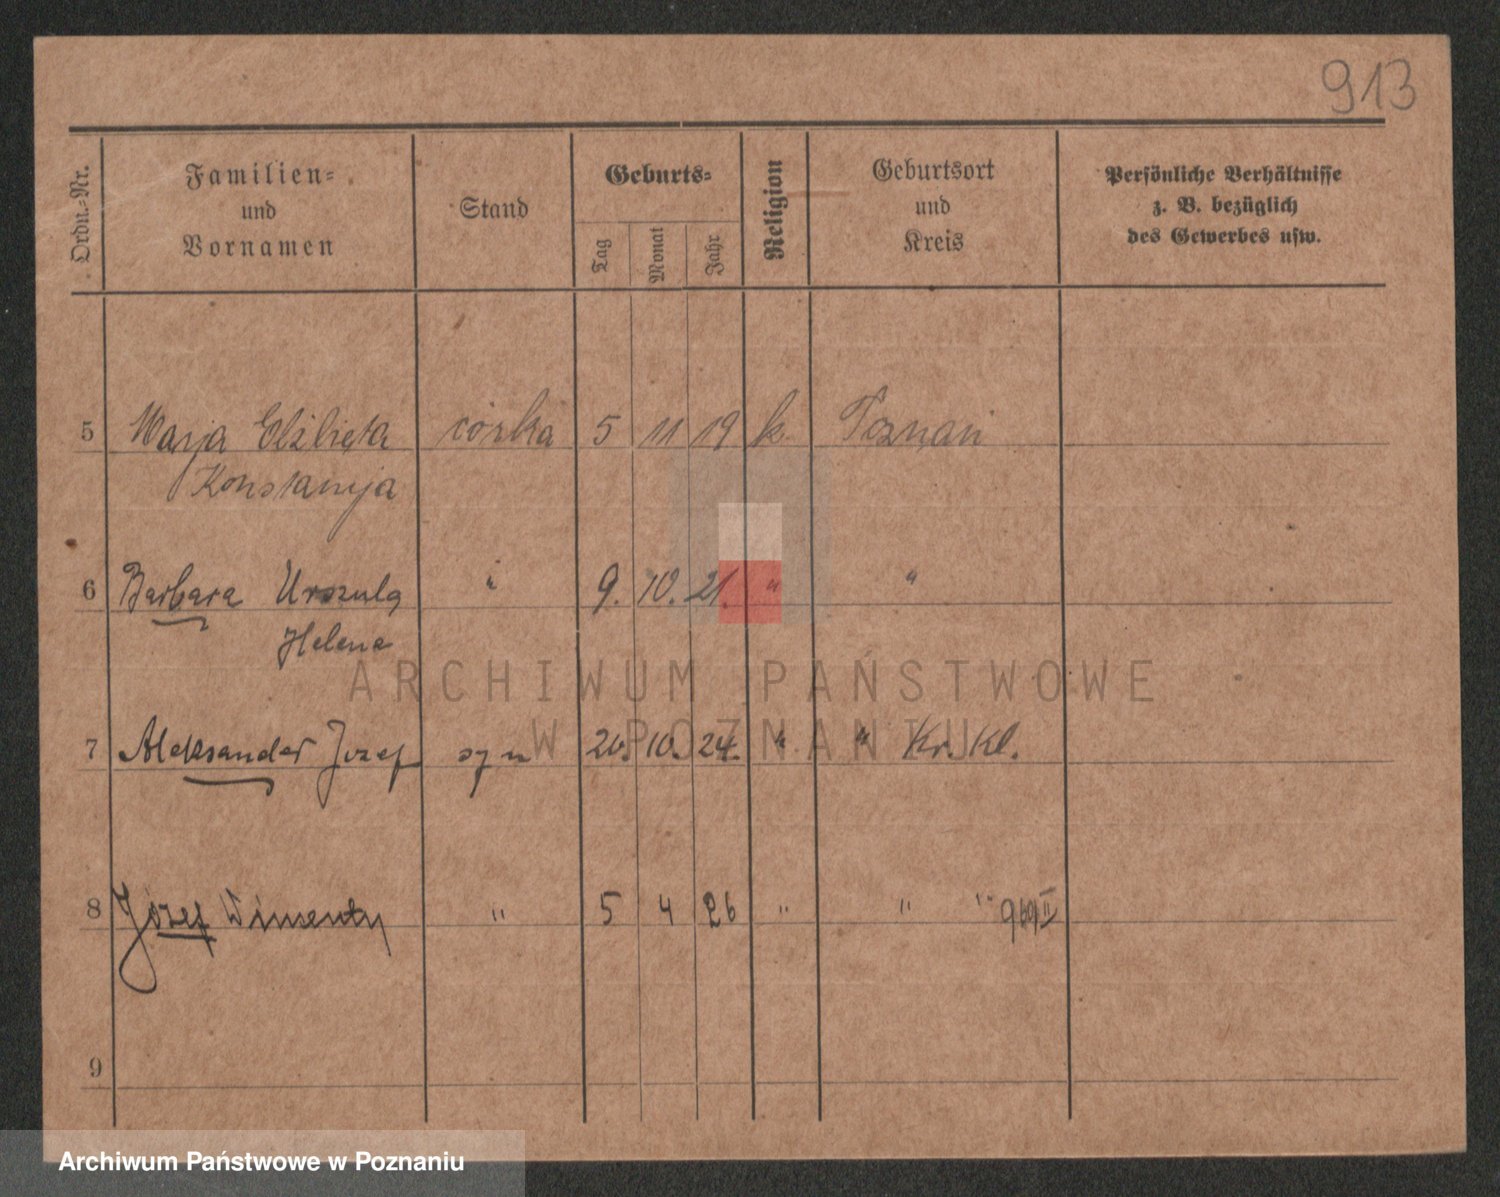 913
Ordn.-Nr.
Familien-
und
Vornamen
Stand
Geburts-
Tag
Monat
Jahr
Religion
Geburtsort
und
Kreis
Persönliche Verhältnisse
z. B. bezüglich
des Gewerbes usw.
5 Marja Elżbieta córka 5 11 19 k. Poznań
Konstancja
6 Barbara Urszula " 9. 10. 21. " "
Helena
7 Aleksander Józef syn 20. 10. 24. " " Kr. Kl.
8 Józef Wincenty " 5 4 26 " " "
9
ARCHIWUM PAŃSTWOWE
W POZNANIU
Archiwum Państwowe w Poznaniu